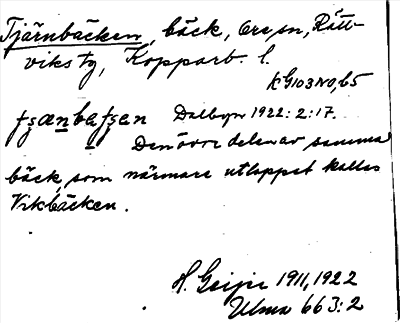 Tjärnbäcken, bäck, Ore sn, Rätt-
viks tg, Kopparb. l.
KG103NO, b5
Dalbyn 1922:2:17.
Den övre delen av samma
bäck, som närmare utloppet kallas
Vikbäcken.
H. Geijer 1911, 1922
Ulma 663:2